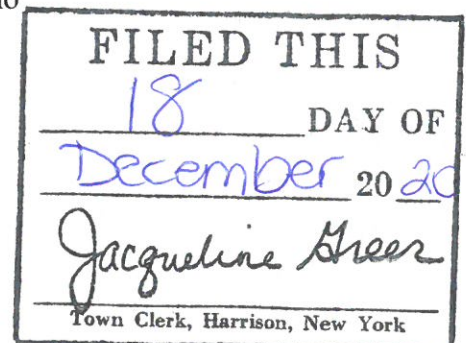 FILED THIS
18 DAY OF
December 20 20
Jacqueline Greer
Town Clerk, Harrison, New York